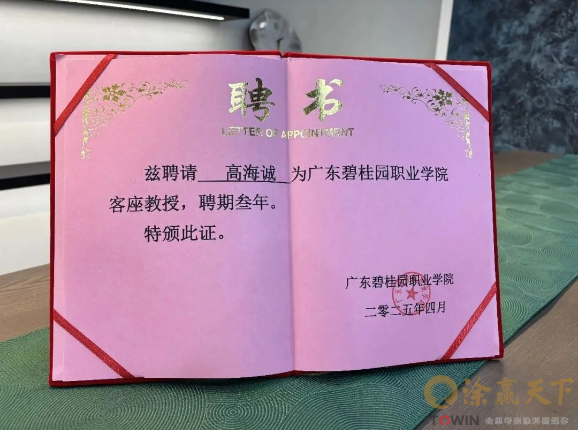 聘书
LETTER OF APPOINTMENT
兹聘请 高海诚 为广东碧桂园职业学院
客座教授，聘期叁年。
特颁此证。
广东碧桂园职业学院
二零二五年四月
涂赢天下
TOWIN